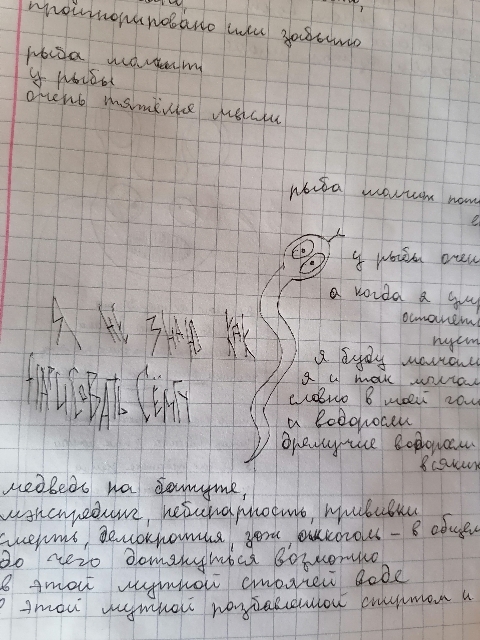 проигнорировано или забыто
рыба молчит
у рыбы
очень тяжёлые мысли
рыба молчит
у рыбы
а когда я
я буду
я и так молчал
словно в моей
и водоросли
дремучие водоросли
всяких
Я НЕ ЗНАЮ КАК
НАРИСОВАТЬ СЁМГУ
медведь на батуте,
мэнспрединг, небинарность, прививки
смерть, демократия, зож, алкоголь – в общем
до чего дотянуться возможно
в этой мутной стоячей воде
в этой мутной разбавленной спиртом и